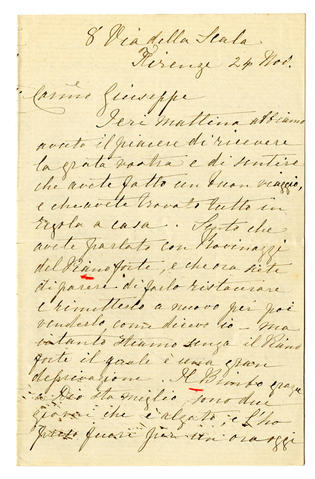 8 Via della Scala
Firenze 24 Nov.
Carmo Giuseppe
Ieri mattina abbiamo
avuto il piacere di ricevere
la grata vostra e di sentire
che avete fatto un buon viaggio,
e che avete trovato tutto in
regola a casa. Sento che
avete parlato con
del Pianoforte, e che ora siete
di parere di farlo ristaurare
e rimetterlo a nuovo per poi
venderlo, come dicevo io - ma
intanto stiamo senza il Piano
forte il quale è una gran
deprivazione. Il Bimbo grazie
a Dio sta meglio, sono due
giorni che è alzato, e l'ho
fuori per un'ora oggi